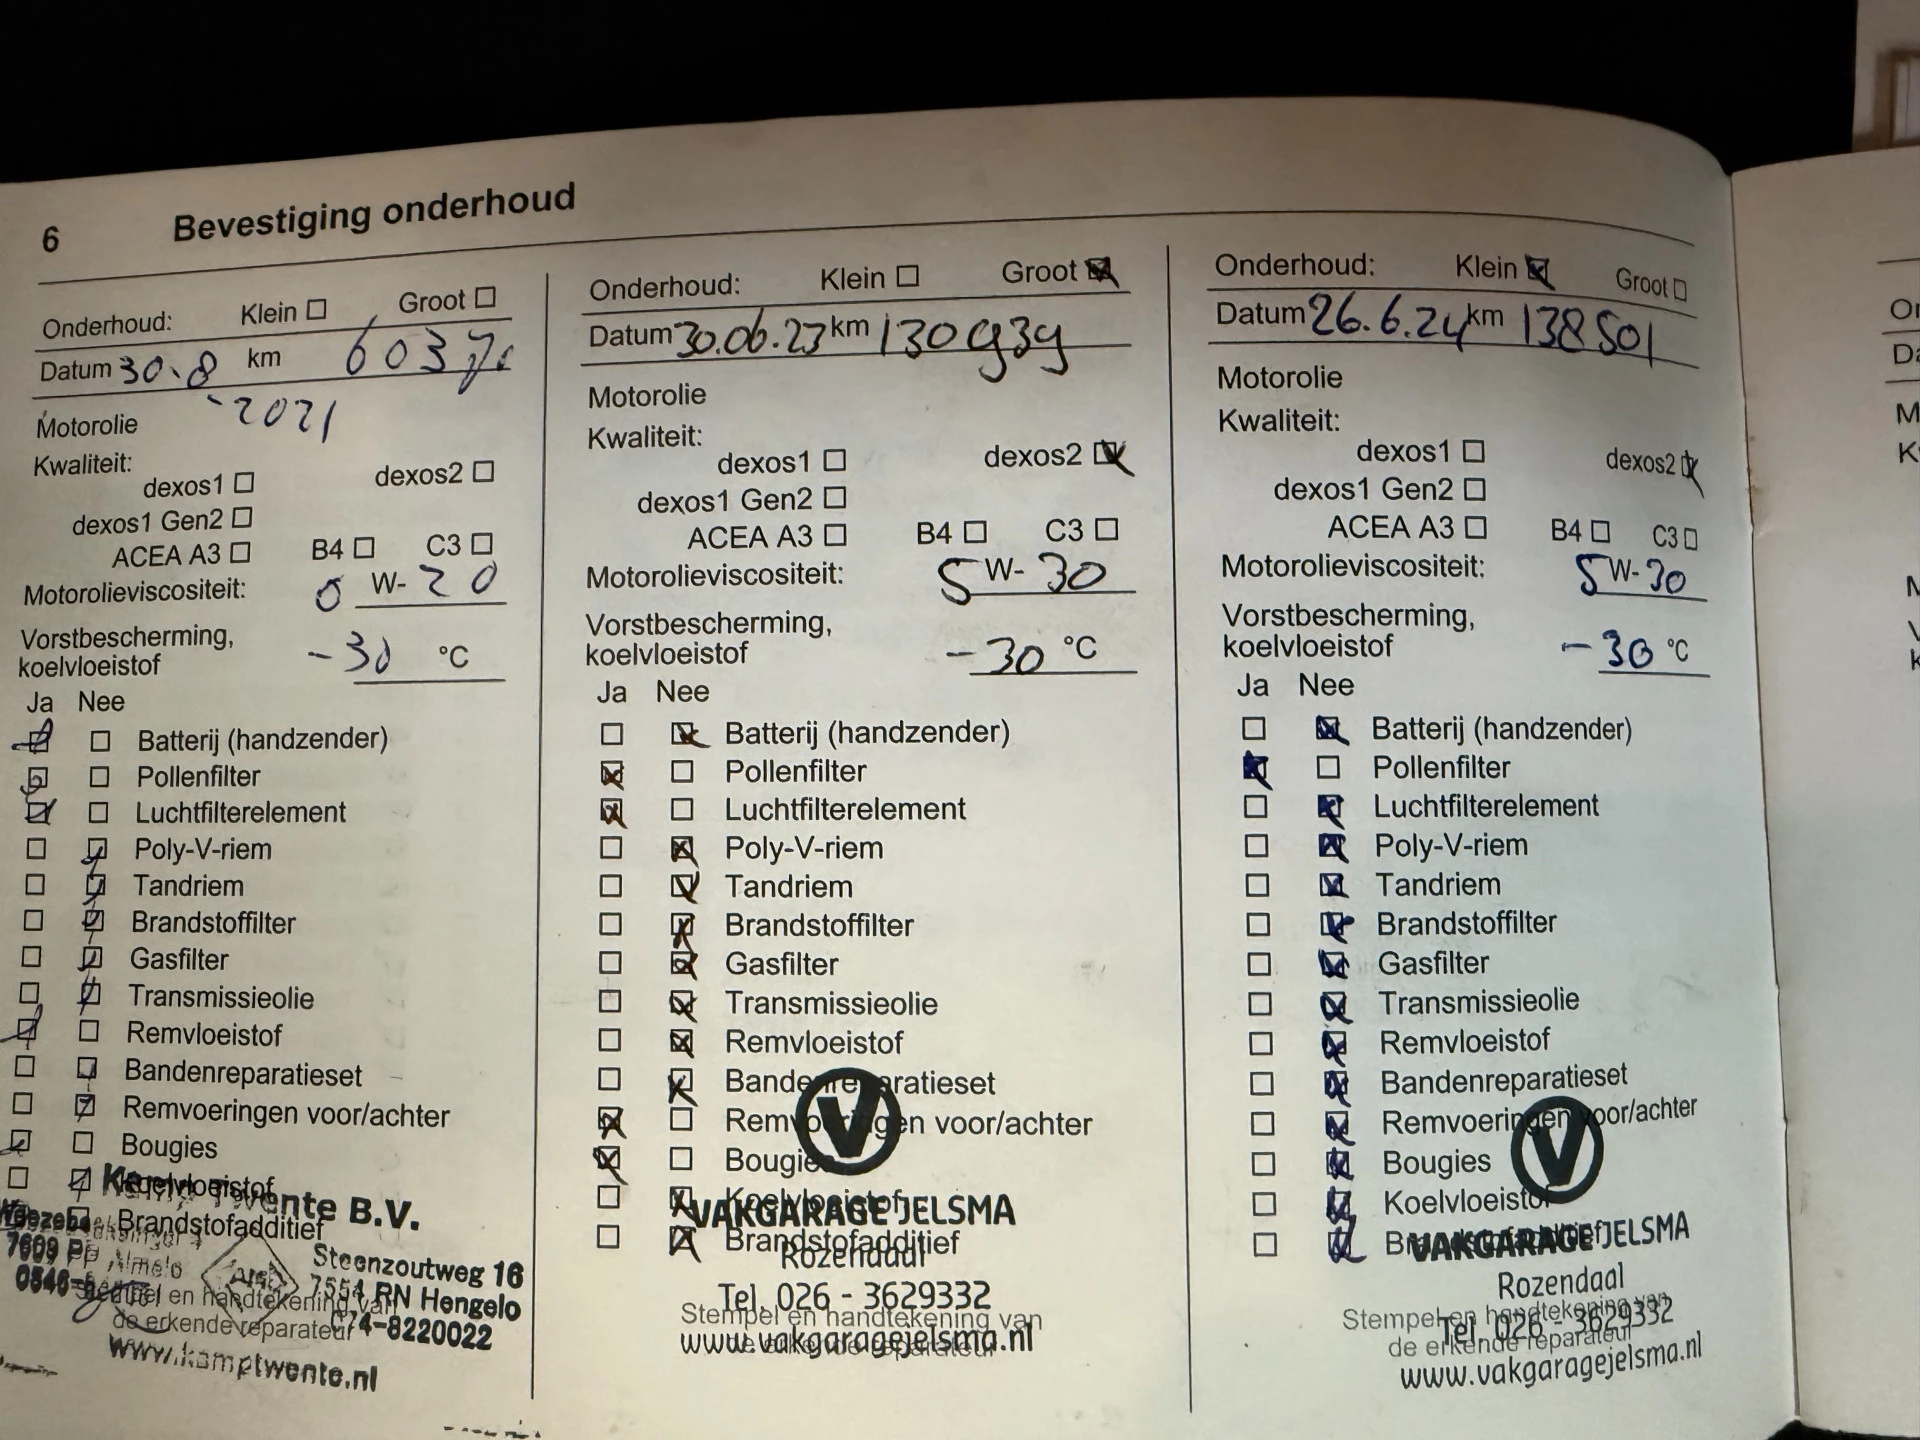 6 Bevestiging onderhoud
Onderhoud: Klein Groot
Datum 30.8 km
-2021
Motorolie
Kwaliteit:
dexos1 dexos2
dexos1 Gen2
ACEA A3 B4 C3
Motorolieviscositeit: 0 W- 20
Vorstbescherming,
koelvloeistof -30 °C
Ja Nee
Batterij (handzender)
Pollenfilter
Luchtfilterelement
Poly-V-riem
Tandriem
Brandstoffilter
Gasfilter
Transmissieolie
Remvloeistof
Bandenreparatieset
Remvoeringen voor/achter
Bougies
Koelvloeistof
Brandstofadditief
Twente B.V.
Steenzoutweg 16
Almelo
7554 RN Hengelo
074-8220022
Stempel en handtekening van
de erkende reparateur
www.kamptwente.nl
Onderhoud: Klein Groot
Datum 30.06.23 km 130939
Motorolie
Kwaliteit:
dexos1 dexos2
dexos1 Gen2
ACEA A3 B4 C3
Motorolieviscositeit: 5 W- 30
Vorstbescherming,
koelvloeistof -30 °C
Ja Nee
Batterij (handzender)
Pollenfilter
Luchtfilterelement
Poly-V-riem
Tandriem
Brandstoffilter
Gasfilter
Transmissieolie
Remvloeistof
Bandenreparatieset
Remvoeringen voor/achter
Bougies
Koelvloeistof
VAKGARAGE JELSMA
Brandstofadditief
Rozendaal
Tel. 026 - 3629332
Stempel en handtekening van
de erkende reparateur
www.vakgaragejelsma.nl
Onderhoud: Klein Groot
Datum 26.6.24 km 138501
Motorolie
Kwaliteit:
dexos1 dexos2
dexos1 Gen2
ACEA A3 B4 C3
Motorolieviscositeit: 5 W- 30
Vorstbescherming,
koelvloeistof -30 °C
Ja Nee
Batterij (handzender)
Pollenfilter
Luchtfilterelement
Poly-V-riem
Tandriem
Brandstoffilter
Gasfilter
Transmissieolie
Remvloeistof
Bandenreparatieset
Remvoeringen voor/achter
Bougies
Koelvloeistof
Brandstofadditief
VAKGARAGE JELSMA
Rozendaal
Stempel en handtekening van
Tel. 026 - 3629332
de erkende reparateur
www.vakgaragejelsma.nl